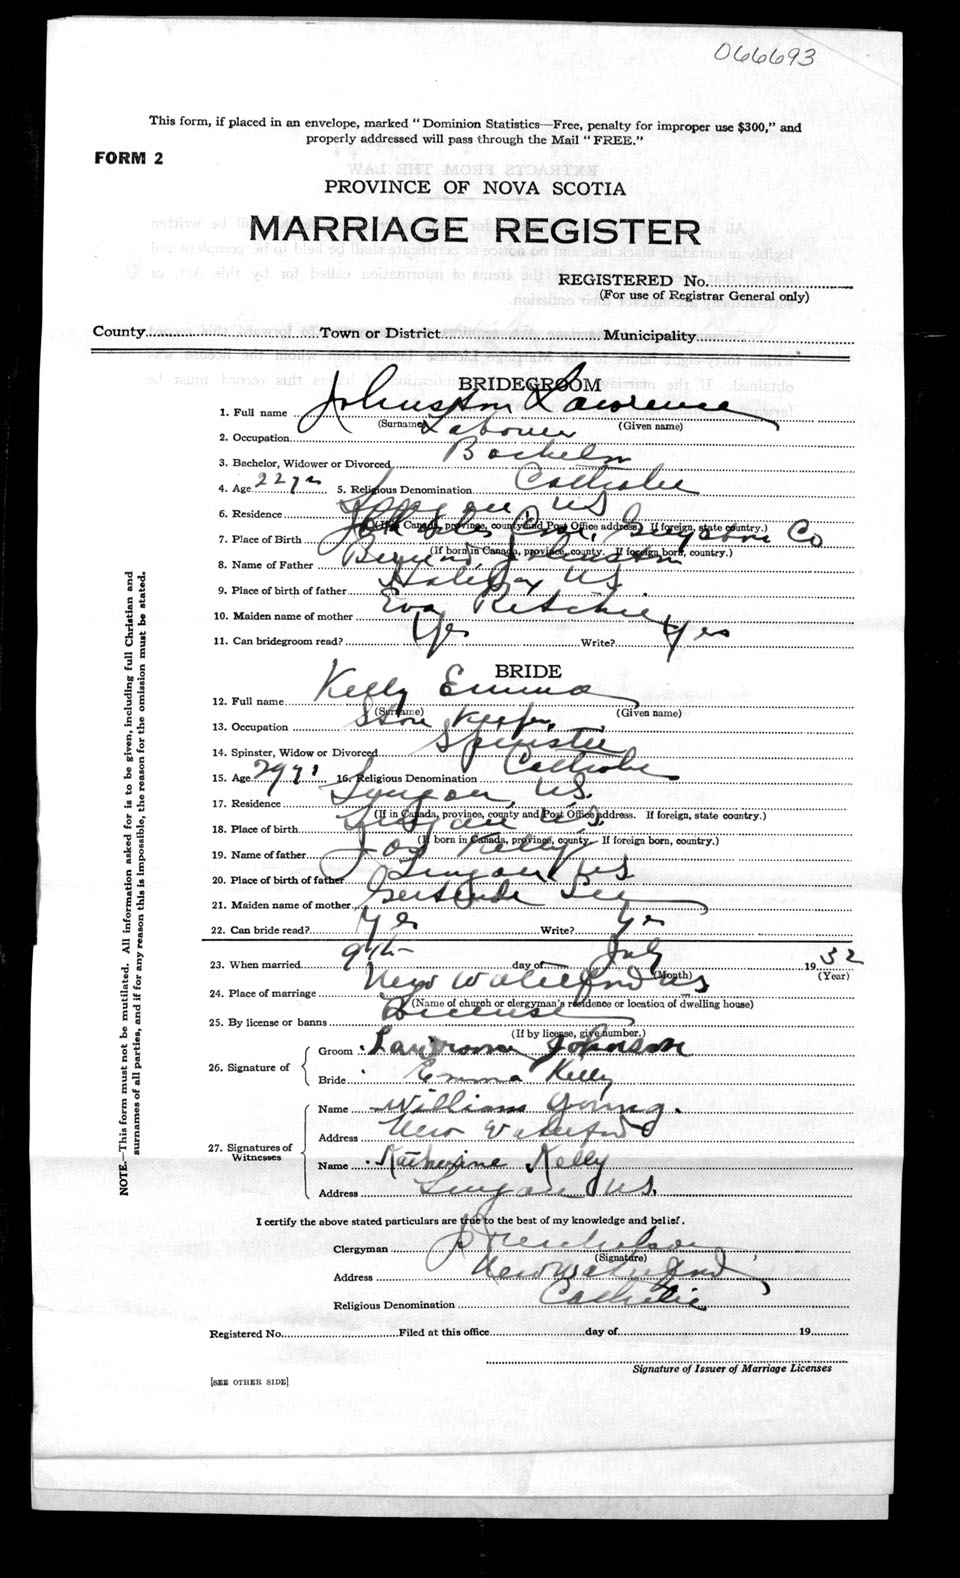 066693
This form, if placed in an envelope, marked "Dominion Statistics—Free, penalty for improper use $300," and
properly addressed will pass through the Mail "FREE."
FORM 2
PROVINCE OF NOVA SCOTIA
MARRIAGE REGISTER
REGISTERED No.
(For use of Registrar General only)
County Town or District Municipality
BRIDEGROOM
1. Full name Johnston Lawrence
(Surname) (Given name)
2. Occupation Labourer
3. Bachelor, Widower or Divorced Bachelor
4. Age 22 yrs 5. Religious Denomination Catholic
6. Residence Lingan NS
(If in Canada, province, county and Post Office address. If foreign, state country.)
7. Place of Birth Cove, Guysboro Co
(If born in Canada, province, county. If foreign born, country.)
8. Name of Father Johnston
9. Place of birth of father Halifax NS
10. Maiden name of mother Eva Ritchie
11. Can bridegroom read? Yes Write? Yes
BRIDE
12. Full name Kelly Emma
(Surname) (Given name)
13. Occupation Store Keeper
14. Spinster, Widow or Divorced Spinster
15. Age 29 yrs 16. Religious Denomination Catholic
17. Residence Lingan, N.S.
(If in Canada, province, county and Post Office address. If foreign, state country.)
18. Place of birth Lingan N.S.
(If born in Canada, province, county. If foreign born, country.)
19. Name of father Jos Kelly
20. Place of birth of father Lingan NS
21. Maiden name of mother Gertrude
22. Can bride read? Yes Write? Yes
23. When married 9th day of July 1932
(Month) (Year)
24. Place of marriage New Waterford NS
(Name of church or clergyman's residence or location of dwelling house)
25. By license or banns License
(If by license, give number.)
26. Signature of
Groom Lawrence Johnson
Bride Emma Kelly
27. Signatures of Witnesses
Name William Young.
Address New Waterford
Name Katherine Kelly
Address Lingan NS.
I certify the above stated particulars are true to the best of my knowledge and belief.
Clergyman
(Signature)
Address New Waterford
Religious Denomination Catholic
Registered No. Filed at this office day of 19
Signature of Issuer of Marriage Licenses
[SEE OTHER SIDE]
NOTE.—This form must not be mutilated. All information asked for is to be given, including full Christian and
surnames of all parties, and if for any reason this is impossible, the reason for the omission must be stated.